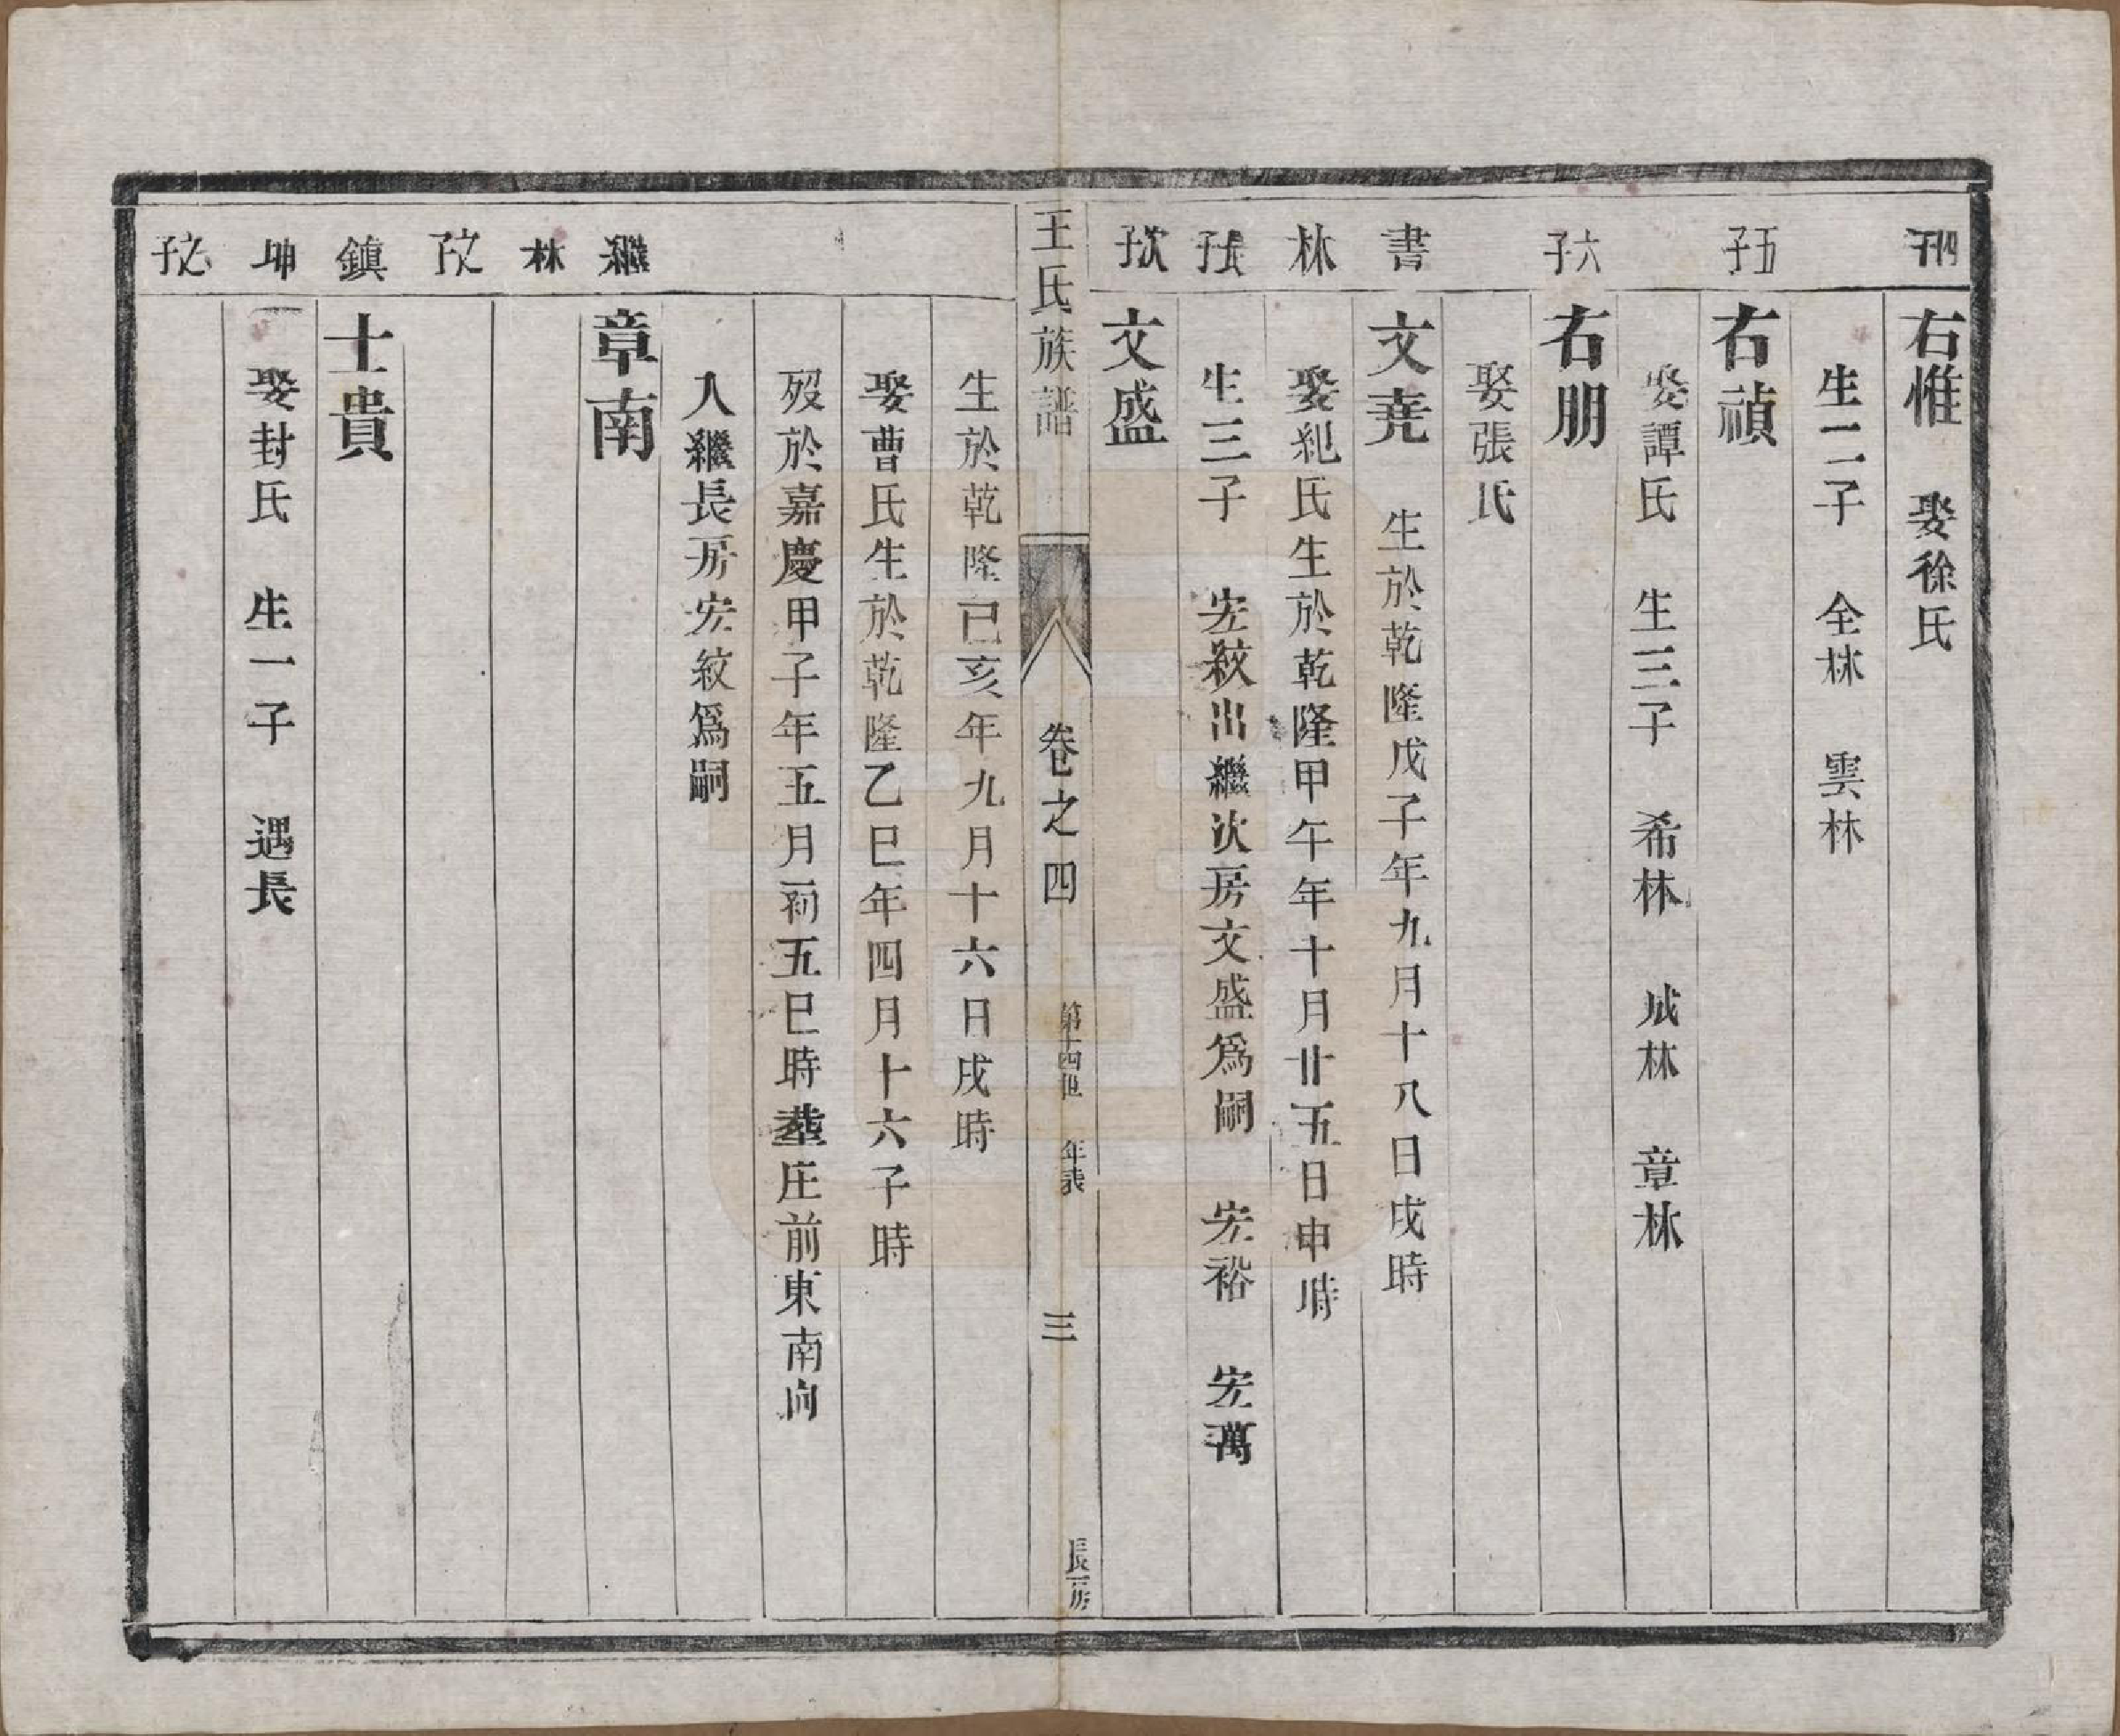 四子
右惟　娶徐氏
生二子　全林　雲林
五子
右禎
娶譚氏　生三子　希林　成林　章林
六子
右朋
娶張氏
書
文尭　生於乾隆戊子年九月十八日戌時
林
娶紀氏生於乾隆甲午年十月廿五日申時
長子
生三子　宏紋出繼次房文盛爲嗣　宏裕　宏萬
次子
文盛
王氏族譜　卷之四　第十四世　年表　三　長房
生於乾隆己亥年九月十六日戌時
娶曹氏生於乾隆乙巳年四月十六子時
歿於嘉慶甲子年五月初五巳時塟庄前東南向
入繼長房宏紋爲嗣
繼
章南
林
文子
鎮
士貴
坤
娶封氏　生一子　遇長
之子